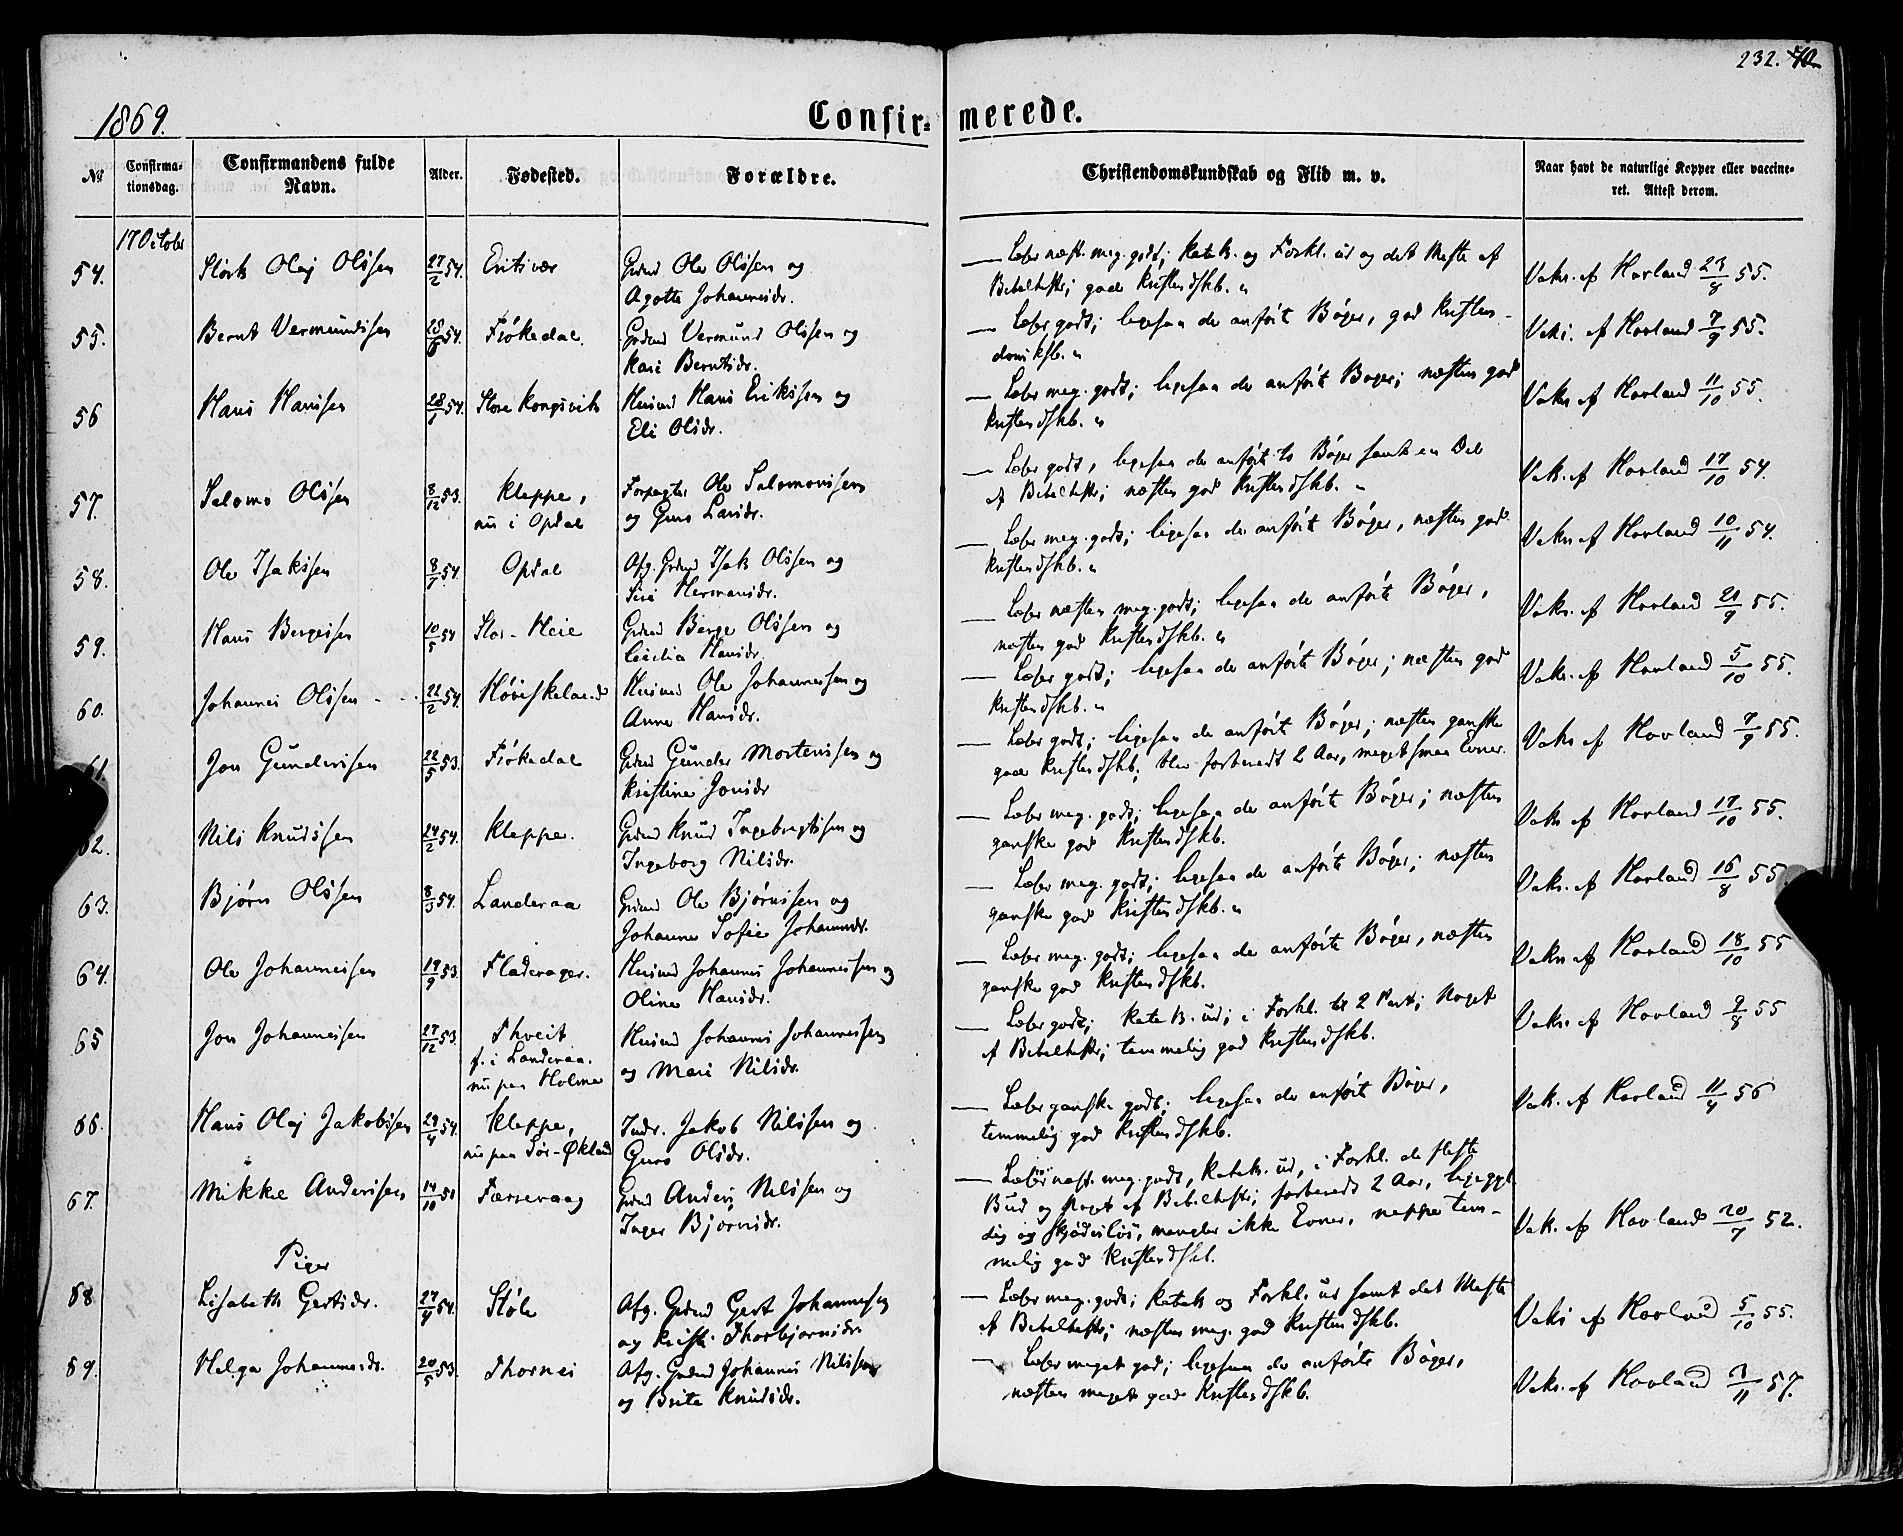 232.
1869.
Confir- merede.
No Confirma-tionsdag. Confirmandens fulde Navn. Alder. Fødested. Forældre. Christendomskundskab og Flid m. v. Naar havt de naturlige Kopper eller vaccine-ret. Attest derom.
17 October
54. Olaj Olsen 27/2 54. Grdmd Ole Olssen og
Agotte Johannesdr.
Læser næst. meg. godt; Katek. og Forkl. ud og det Meste af
Bibelhist; god Kristendskb.
Vakc. af Havland 23/8 55.
55. Bernt Vermundssen 28/6 54. Fiökedal Grdmd Vermund Olssen og
Kari Berntsdr.
Læser godt; ligesaa de anförte Böger, god Kristen-
domskb.
Vakc. af Havland 7/9 55.
56 Hans Hanssen 54. Store Kongsvik Husmd Hans Erikssen og
Eli Olsdr.
Læser meg. godt; ligesaa de anförte Böger; næsten god
Kristendskb.
Vakc. af Havland 11/10 55.
57. Salomo Olssen 8/12 53. Kleppe,
nu i Opdal
Forpagter Ole Salomonssen
og Guro Larsdr.
Læser godt, ligesaa de anförte to Böger samt en Del
af Bibelhist; næsten god Kristendskb.
Vakc. af Havland 17/10 54.
58. Ole Isakssen 8/1 54. Opdal Afg. Grdmd Isak Olssen og
Siri Hermansdr.
Læser meg. godt; ligesaa de anförte Böger, næsten god
Kristendskb.
Vakc. af Havland 10/11 54.
59. Hans Bergessen 10/5 54 Stor-Heie Grdmd Berge Olssen og
Cecilia Hansdr.
Læser næsten meg. godt; ligesaa de anförte Böger,
næsten god Kristendskb.
Vakc. af Havland 21/9 55.
60. Johannes Olssen 22/2 54. Høviskeland Husmd Ole Johannessen og
Anne Hansdr.
Læser godt; ligesaa de anförte Böger; næsten god
Kristendskb.
Vakc. af Havland 5/10 55.
61. Jon Gunderssen 22/5 53. Fiökedal Grdmd Gunder Mortenssen og
Kristine Jonsdr
Læser godt; ligesaa de anförte Böger; næsten ganske
god Kristendskb; blev forberedt 2 Aar, meget smaa Evner.
Vakc. af Havland 7/9 55.
62. Nils Knudssen 24/2 54. Kleppe. Grdmd Knud Ingebrigtssen og
Ingeborg Nilsdr.
Læser meg. godt; ligesaa de anförte Böger; næsten
ganske god Kristendskb.
Vakc. af Havland 17/10 55.
63. Bjørn Olssen 8/3 54. Landeraa Grdmd Ole Bjørnssen og
Johanne Sofie Johannsdr.
Læser meg. godt; ligesaa de anförte Böger; næsten
ganske god Kristendskb.
Vakc. af Havland 16/8 55
64. Ole Johannessen 19/9 53. Fladerager. Husmd Johannes Johannessen og
Oline Hansdr.
Læser meg. godt; ligesaa de anförte Böger, næsten
ganske god Kristendskb.
Vakc. af Havland 18/10 55
65 Jon Johannessen 27/12 53. Thveit
f. i Landeraa.
nu paa Holme
Husmd Johannes Johannessen
og Mari Nilsdr.
Læser godt; Katek. ud; i Forkl. til 2 Part; Noget
af Bibelhist; temmelig god Kristendskb.
Vakc. af Havland 9/8 55
66. Hans Olaj Jakobssen 29/4 54. Kleppe,
nu paa Sör-Økland
Inds. Jakob Nilssen og
Guro Olsdr.
Læser ganske godt; ligesaa de anförte Böger,
temmelig god Kristendskb.
Vakc. af Havland 11/4 56
67. Mikkel Anderssen 14/10 51 Færsevaag Grdmd Anders Nilssen og
Inger Bjørnsdr.
Læser næst. meg. godt, Katek. ud, i Forkl. de fleste
Bud og Noget af Bibelhist; forberedt 2 Aar, ligegyl-
dig og skjødeslös, mangler ikke Evner, neppe tem-
melig god Kristendskb.
Vakc. af Havland 20/7 52.
Piger
68 Lisabeth Gertsdr. 27/4 54. Stöle Afg. Grdmd Gert Johannessen
og Krist. Thorbjørnsdr.
Læser meg. godt; Katek og Forkl. ud samt det Meste
af Bibelhist; næsten meg. god Kristendskb.
Vakc. af Havland 5/10 55.
69. Helga Johannesdr. 20/5 53. Thornes Afg. Grdmd Johannes Nilssen
og Brita Knudsdr.
Læser meget godt; ligesaa de anförte Böger,
næsten meget god Kristendskb.
Vakc. af Havland 57.